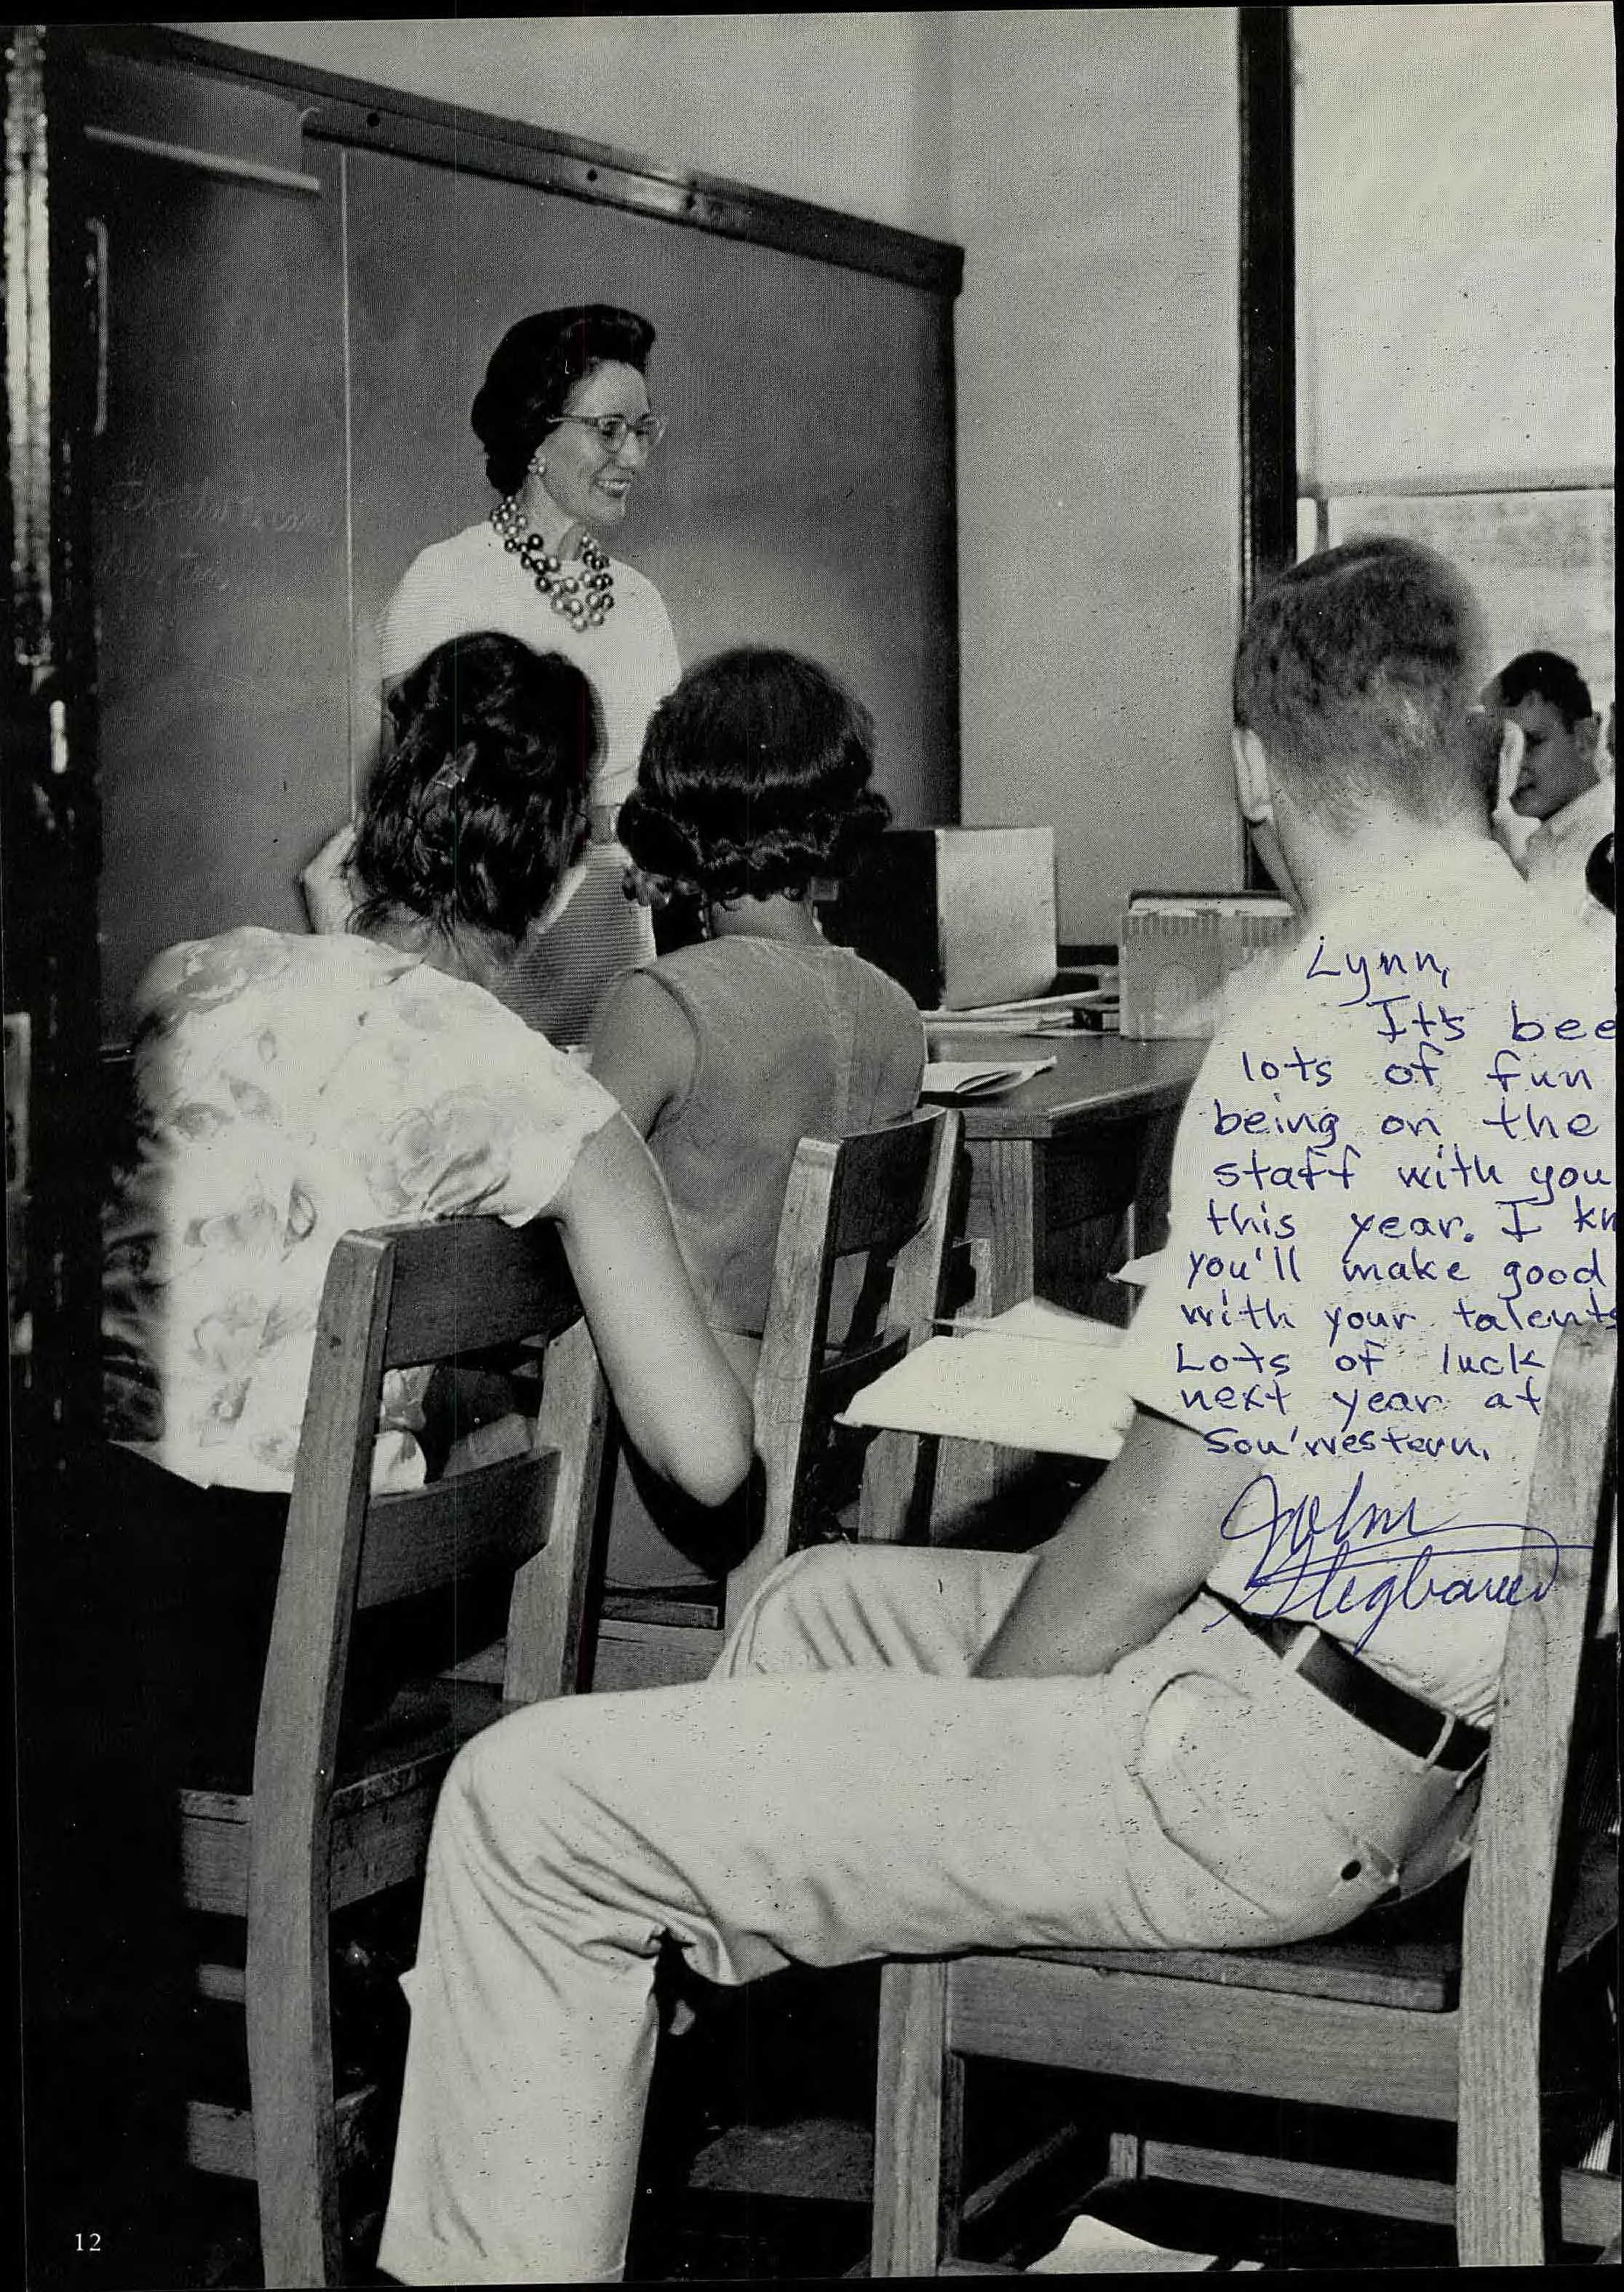 Lynn,
It's bee
lots of fun
being on the
staff with you
this year. I kn
you'll make good
with your talents
Lots of luck
next year at
Sou'western.
John
Stegbauer
12